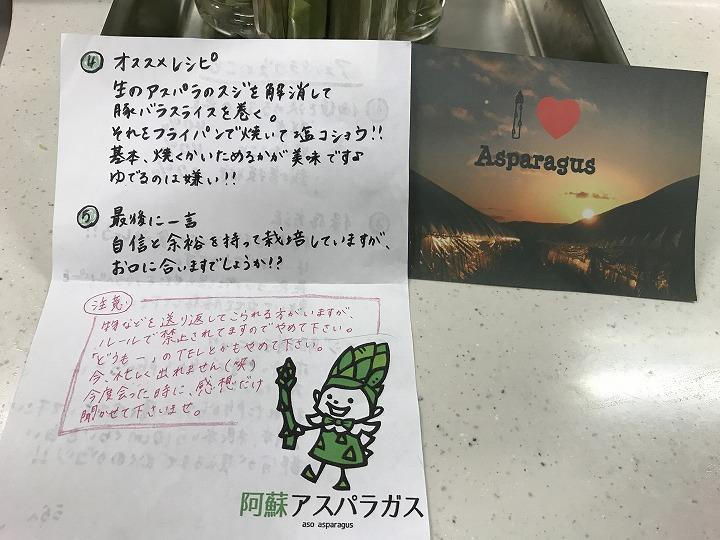 ④ オススメレシピ
生のアスパラのスジを解消して
豚バラスライスを巻く。
それをフライパンで焼いて塩コショウ!!
基本、焼くかいためるかが美味ですよ
ゆでるのは嫌い!!
⑤ 最後に一言
自信と余裕を持って栽培していますが、
お口に合いますでしょうか!?
注意
物などを送り返してこられる方がいますが、
ルールで禁止されてますのでやめて下さい。
「どうもー」のTELとかもやめて下さい。
今、忙しく出れません(笑)
今度会った時に、感想だけ
聞かせて下さいませ。
阿蘇アスパラガス
aso asparagus
I ❤
Asparagus